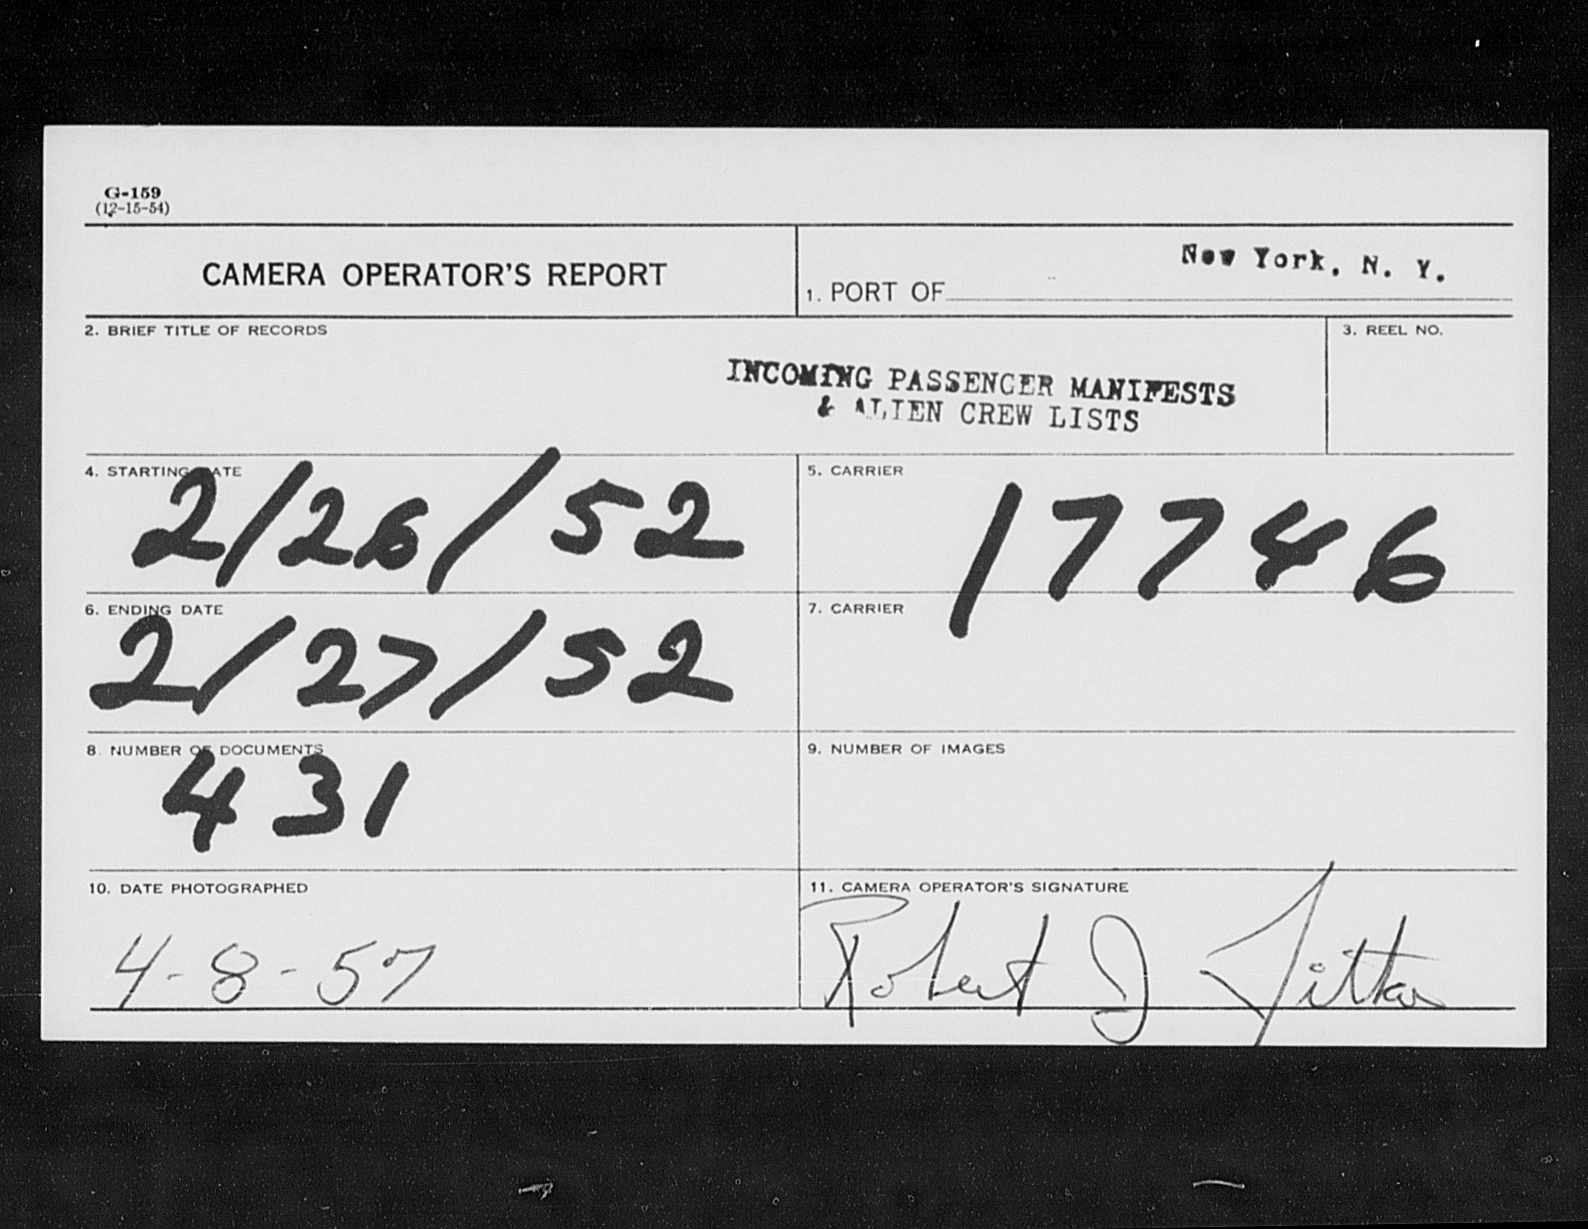 G-159
(12-15-54)
CAMERA OPERATOR'S REPORT
1. PORT OF New York, N. Y.
2. BRIEF TITLE OF RECORDS
INCOMING PASSENGER MANIFESTS
& ALIEN CREW LISTS
3. REEL NO.
4. STARTING DATE
2/26/52
5. CARRIER
17746
6. ENDING DATE
2/27/52
7. CARRIER
8. NUMBER OF DOCUMENTS
431
9. NUMBER OF IMAGES
10. DATE PHOTOGRAPHED
4-8-57
11. CAMERA OPERATOR'S SIGNATURE
Robert J